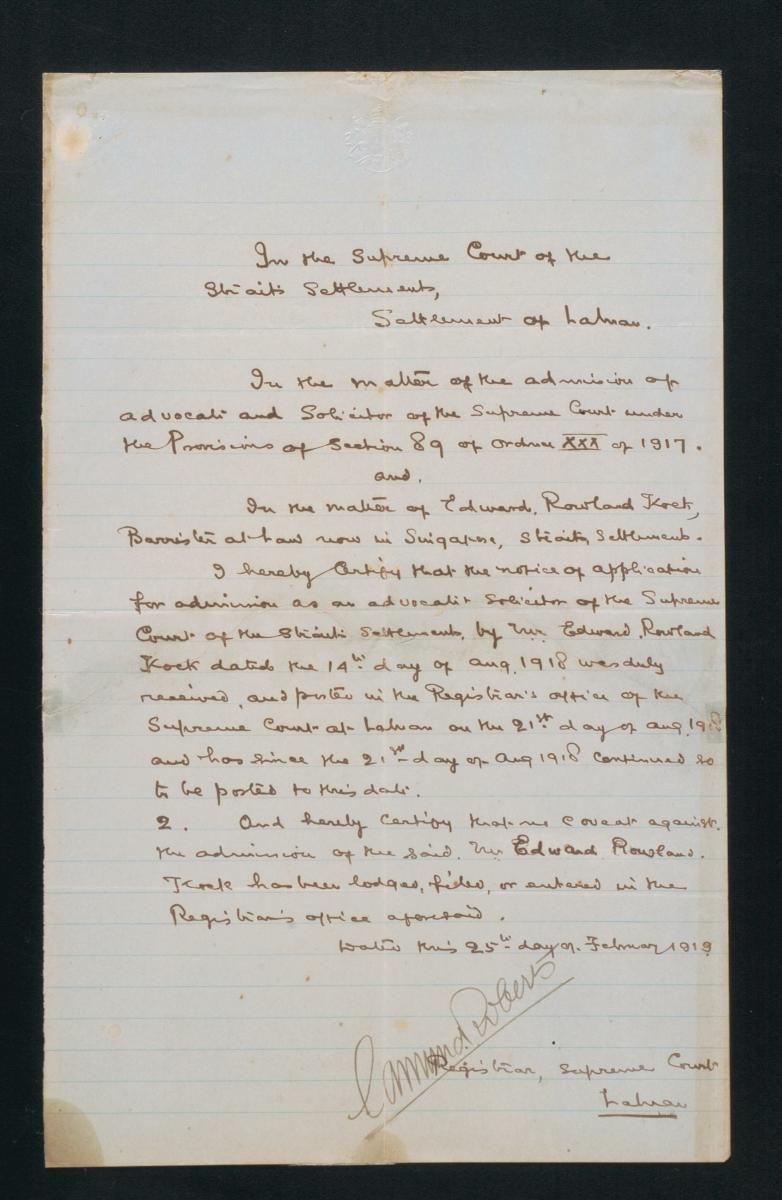 In the Supreme Court of the
Straits Settlements,
Settlement of Labuan.
In the matter of the admission of
advocate and Solicitor of the Supreme Court under
the Provisions of Section 89 of Ordnce XXX of 1917.
and.
In the matter of Edward, Rowland Kock,
Barrister at Law now in Singapore, Straits Settlements.
I hereby Certify that the notice of application
for admission as an advocate & Solicitor of the Supreme
Court of the Straits Settlements, by Mr. Edward, Rowland
Kock dated the 14th day of Aug. 1918 was duly
received, and posted in the Registrar's office of the
Supreme Court at Labuan on the 21st day of Aug. 1918
and has since the 21st day of Aug 1918 continued so
to be posted to this date.
2. And hereby certify that no Coveat against
the admission of the said. Mr Edward Rowland.
Kock has been lodged, filed, or entered in the
Registrar's office aforesaid.
Dated this 25th day of February 1919
Registrar, Supreme Court
Labuan